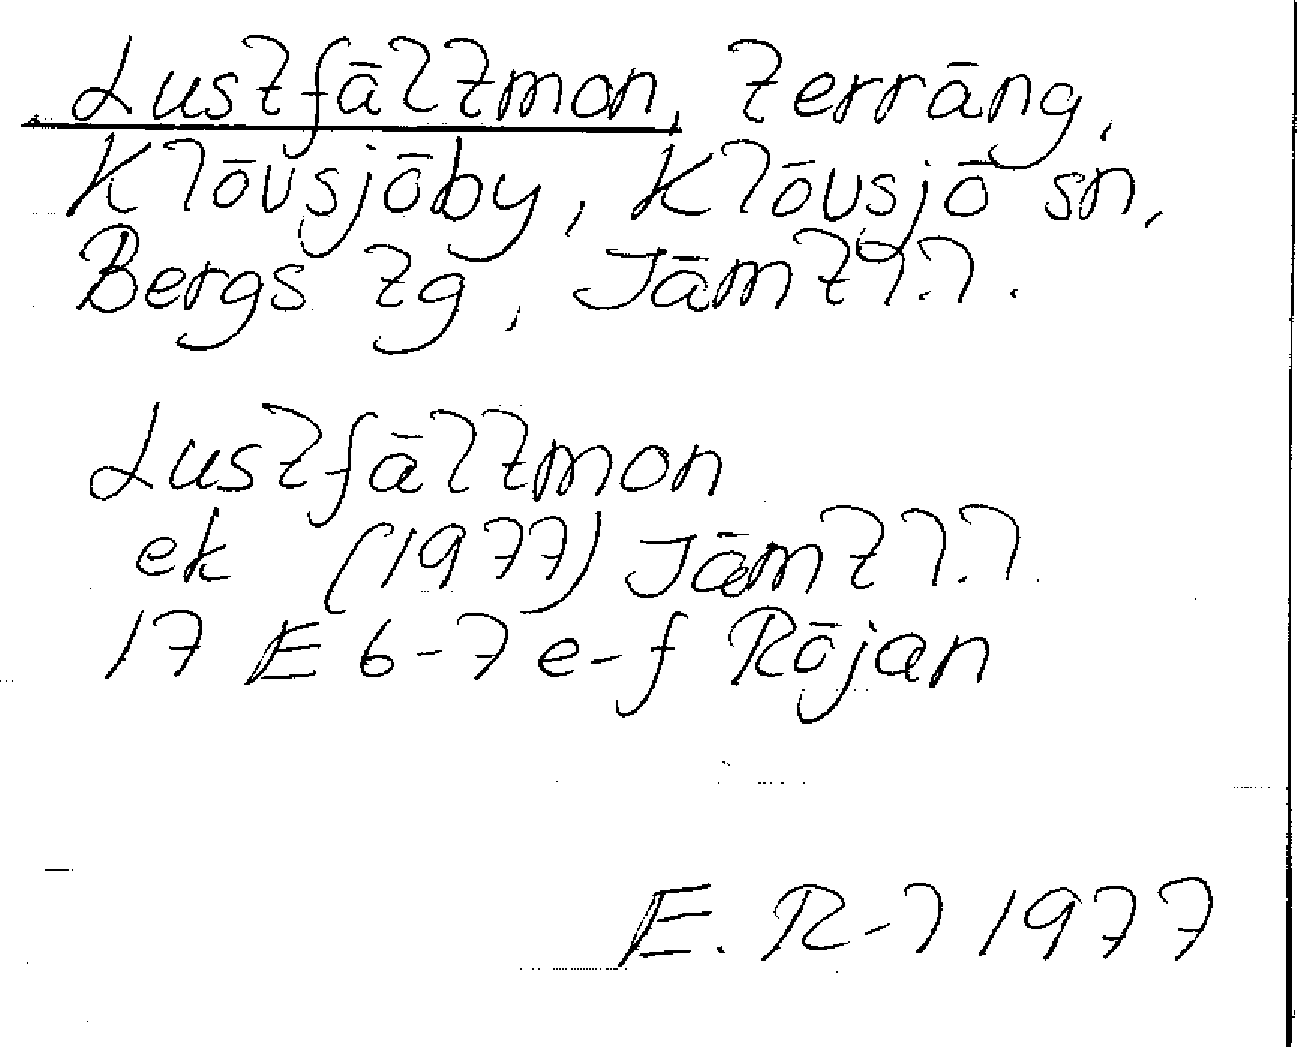 Lustfältmon, terräng,
Klövsjöby, Klövsjö sn,
Bergs tg, Jämtl.l.
Lustfältmon
ek (1977) Jämtl.l.
17 E 6-7 e-f Röjan
E. R-l 1977